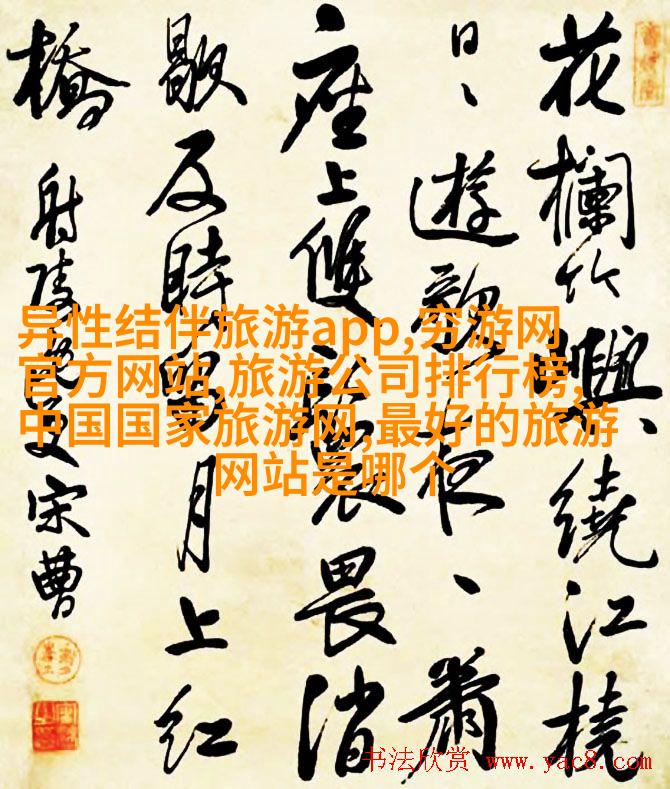 花欄竹繞江橈
日、遊夜、蕭
座上雙畏消
歇反時明月上紅
橋 射陵逸叟宋曹
异性结伴旅游app,穷游网
官方网站,旅游公司排行榜,
中国国家旅游网,最好的旅游
网站是哪个
书法欣赏 www.yac8.com